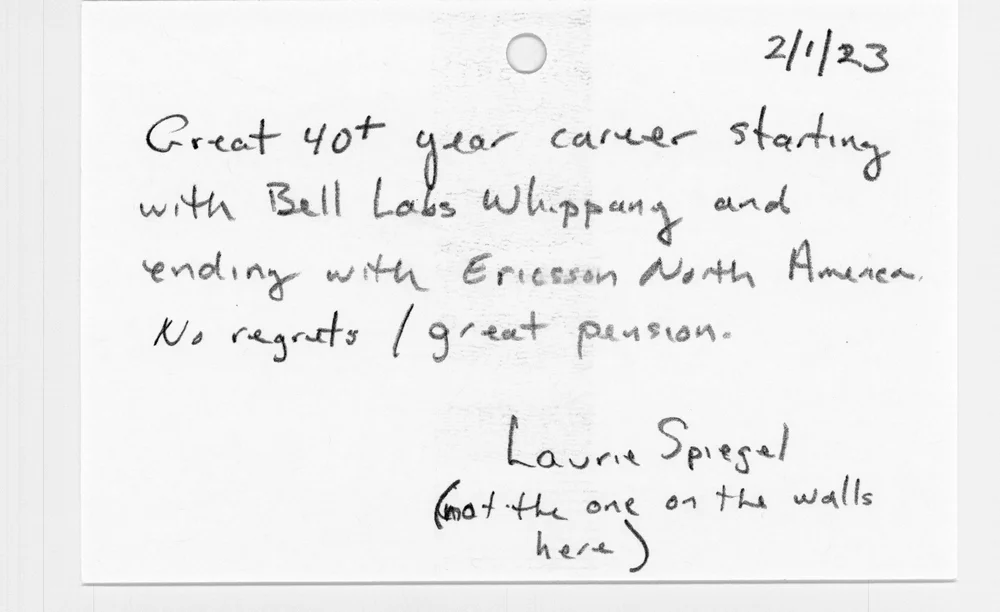 2/1/23
Great 40+ year career starting
with Bell Labs Whippany and
ending with Ericsson North America.
No regrets / great pension.
Laurie Spiegel
(not the one on the walls
here)